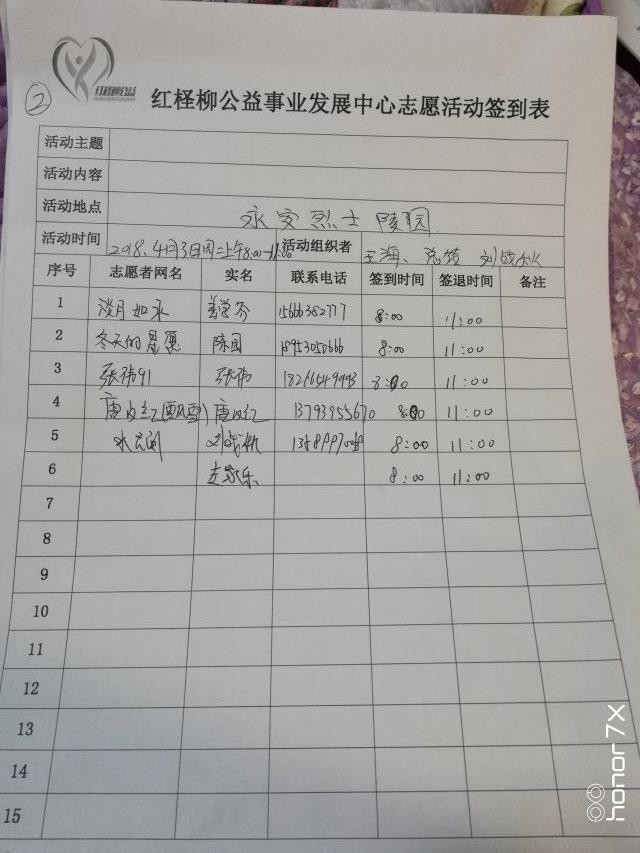 ②
红柽柳公益
红柽柳公益事业发展中心志愿活动签到表
活动主题
活动内容
活动地点 永安烈士陵园
活动时间 2018.4月3日周二上午8:00-11:00 活动组织者 王海、 刘战秋
序号 志愿者网名 实名 联系电话 签到时间 签退时间 备注
1 淡月如水 8:00 11:00
2 冬天的星愿 陈园 8:00 11:00
3 张伟91 张伟 8:00 11:00
4 唐立红(飘雪) 唐立红 13793955670 8:00 11:00
5 刘战秋 8:00 11:00
6 8:00 11:00
7
8
9
10
11
12
13
14
15
honor 7X